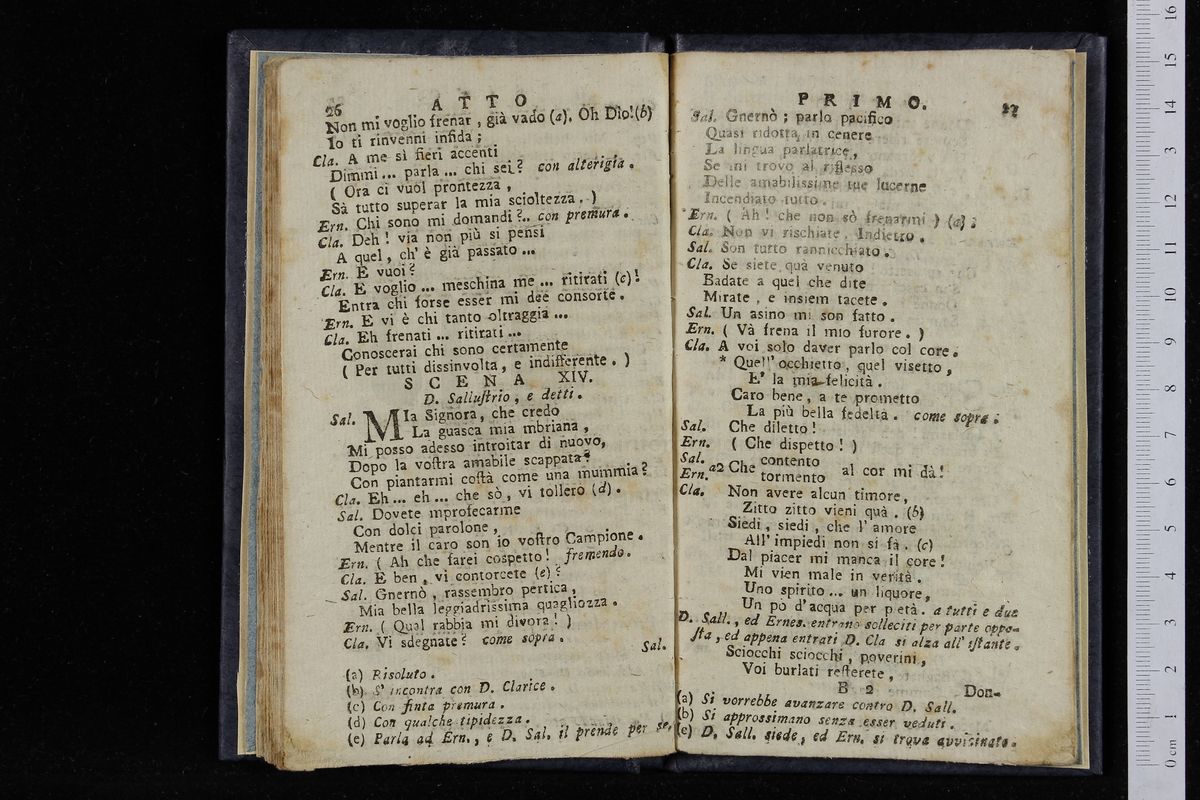 26 ATTO
Non mi voglio frenar, già vado (a). Oh Dio! (b)
Io ti rinvenni infida;
Cla. A me sì fieri accenti
Dimmi... parla... chi sei? con alterigia.
( Ora ci vuol prontezza,
Sà tutto superar la mia scioltezza. )
Ern. Chi sono mi domandi?.. con premura.
Cla. Deh! via non più si pensi
A quel, ch'è già passato...
Ern. E vuoi?
Cla. E voglio... meschina me... ritirati (c)!
Entra chi forse esser mi dee consorte.
Ern. E vi è chi tanto oltraggia...
Cla. Eh frenati... ritirati...
Conoscerai chi sono certamente
( Per tutti dissinvolta, e indifferente. )
SCENA XIV.
D. Sallustrio, e detti.
Sal. MIa Signora, che credo
La guasca mia mbriana,
Mi posso adesso introitar di nuovo,
Dopo la vostra amabile scappata?
Con piantarmi costà come una mummia?
Cla. Eh... eh... che sò, vi tollero (d).
Sal. Dovete mprofecarme
Con dolci parolone,
Mentre il caro son io vostro Campione.
Ern. ( Ah che farei cospetto! fremendo.
Cla. E ben, vi contorcete (e)?
Sal. Gnernò, rassembro pertica,
Mia bella leggiadrissima quagliozza.
Ern. ( Qual rabbia mi divora! )
Cla. Vi sdegnate? come sopra.
Sal.
(a) Risoluto.
(b) S' incontra con D. Clarice.
(c) Con finta premura.
(d) Con qualche tipidezza.
(e) Parla ad Ern., e D. Sal. il prende per se.
PRIMO. 27
Sal. Gnernò; parlo pacifico
Quasi ridotta in cenere
La lingua parlatrice,
Se mi trovo al riflesso
Delle amabilissime tue lucerne
Incendiato tutto.
Ern. ( Ah! che non sò frenarmi ) (a);
Cla. Non vi rischiate. Indietro.
Sal. Son tutto rannicchiato.
Cla. Se siete quà venuto
Badate a quel che dite
Mirate, e insiem tacete.
Sal. Un asino mi son fatto.
Ern. ( Và frena il mio furore. )
Cla. A voi solo daver parlo col core.
* Quell' occhietto, quel visetto,
E' la mia felicità.
Caro bene, a te prometto
La più bella fedeltà. come sopra.
Sal. Che diletto!
Ern. ( Che dispetto! )
Sal. contento
Ern. a2 Che tormento al cor mi dà!
Cla. Non avere alcun timore,
Zitto zitto vieni quà. (b)
Siedi, siedi, che l' amore
All' impiedi non si fà. (c)
Dal piacer mi manca il core!
Mi vien male in verità.
Uno spirito... un liquore,
Un pò d'acqua per pietà. a tutti e due
D. Sall., ed Ernes. entrano solleciti per parte oppo-
sta, ed appena entrati D. Cla si alza all' istante.
Sciocchi sciocchi, poverini,
Voi burlati resterete,
B 2 Don-
(a) Si vorrebbe avanzare contro D. Sall.
(b) Si approssimano senza esser veduti.
(c) D. Sall. siede, ed Ern. si trova avvicinato.